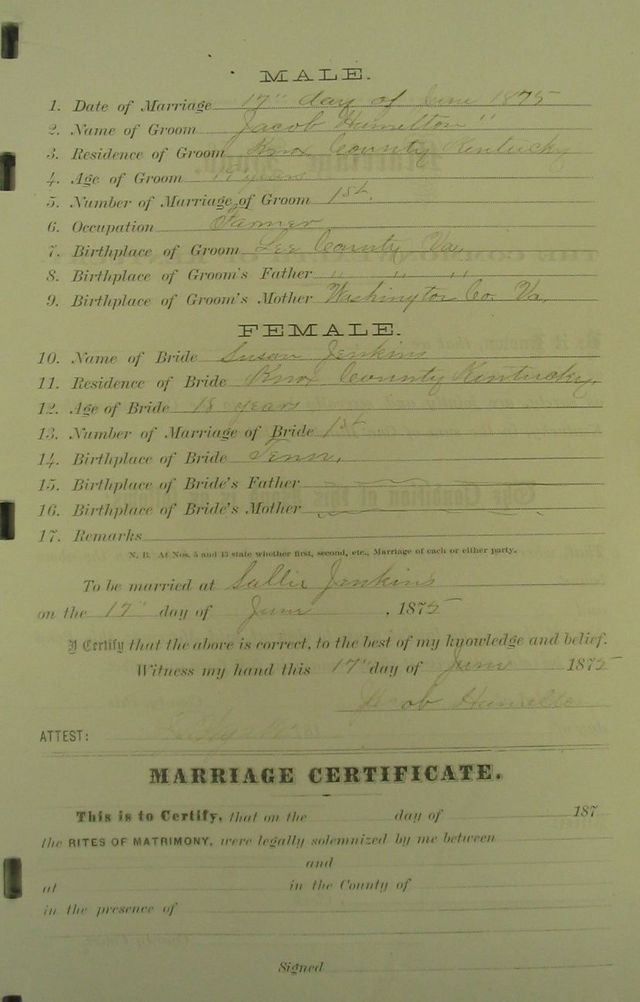 MALE.
1. Date of Marriage 17" day of June 1875
2. Name of Groom Jacob Hamilton "
3. Residence of Groom Knox County Kentucky
4. Age of Groom years
5. Number of Marriage of Groom 1st.
6. Occupation Farmer
7. Birthplace of Groom Lee County Va,
8. Birthplace of Groom's Father " " "
9. Birthplace of Groom's Mother Washington Co. Va.
FEMALE.
10. Name of Bride Susan Jenkins
11. Residence of Bride Knox County Kentucky,
12. Age of Bride 18 years
13. Number of Marriage of Bride 1st
14. Birthplace of Bride Tenn,
15. Birthplace of Bride's Father
16. Birthplace of Bride's Mother
17. Remarks
N. B. At Nos. 5 and 13 state whether first, second, etc., Marriage of each or either party.
To be married at Sallie Jenkins
on the 17" day of June, 1875
I Certify that the above is correct, to the best of my knowledge and belief.
Witness my hand this 17" day of June 1875
Jacob Hamilton
ATTEST:
MARRIAGE CERTIFICATE.
This is to Certify, that on the day of 187
the RITES OF MATRIMONY, were legally solemnized by me between
and
at in the County of
in the presence of
Signed